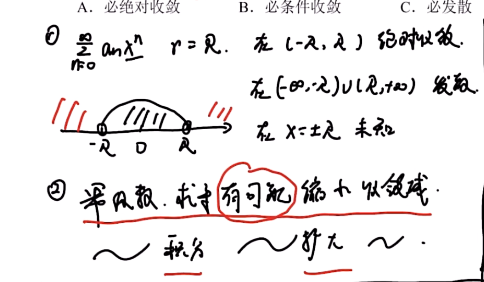 A. 必绝对收敛 B. 必条件收敛 C. 必发散
① ∑_{n=0}^{∞} aₙxⁿ r=R. 在 (-R, R) 绝对收敛.
在 (-∞,-R)∪(R,+∞) 发散
在 x=±R 未知
-R 0 R
② 幂级数. 求导有可能缩小收敛域.
～ 积分 ～ 扩大 ～.